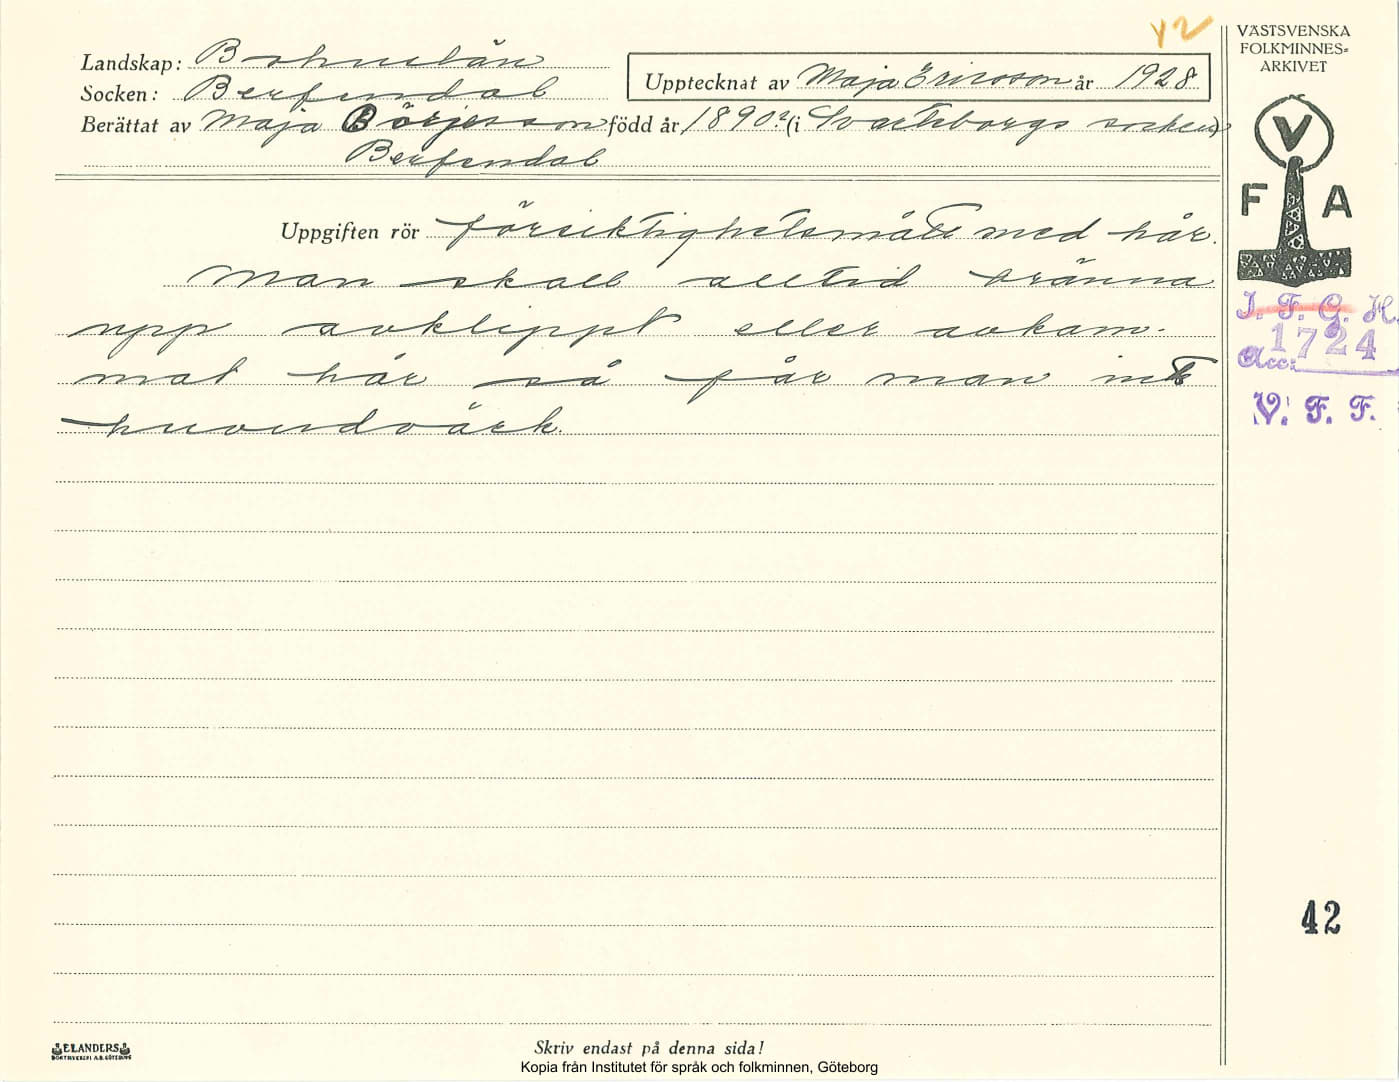 42
VÄSTSVENSKA
FOLKMINNES-
ARKIVET
Landskap: Bohuslän
Socken: Berfendal
Upptecknat av Maja Ericsson år 1928
Berättat av Maja Börjesson född år 1890? (i Svarteborgs socken)
Berfendal
V
F A
Uppgiften rör försiktighetsmått med hår.
Man skall alltid bränna
upp avklippt eller avkam-
mat hår så får man inte
huvudvärk.
I. F. G. H.
1724
Acc:
V. F. F.
42
ELANDERS
BOKTRYCKERI A.B. GÖTEBORG
Skriv endast på denna sida!
Kopia från Institutet för språk och folkminnen, Göteborg